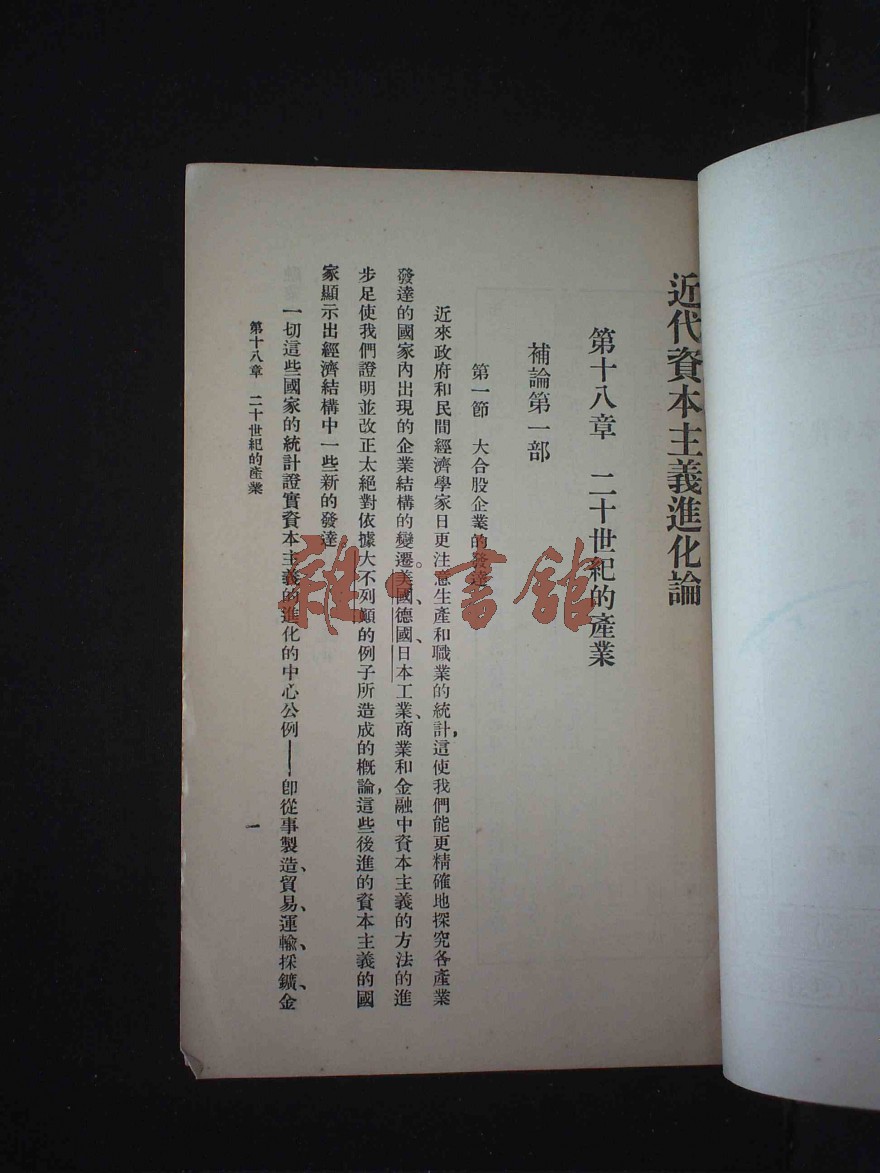 近代資本主義進化論
第十八章　二十世紀的產業
補論第一部
第一節　大合股企業的發達
近來政府和民間經濟學家日更注意生產和職業的統計，這使我們能更精確地探究各產業
發達的國家內出現的企業結構的變遷。美國、德國、日本工業、商業和金融中資本主義的方法的進
步足使我們證明並改正太絕對依據大不列顛的例子所造成的概論，這些後進的資本主義的國
家顯示出經濟結構中一些新的發達
一切這些國家的統計證實資本主義的進化的中心公例——卽從事製造、貿易、運輸、採鑛、金
第十八章　二十世紀的產業
一
雜書館